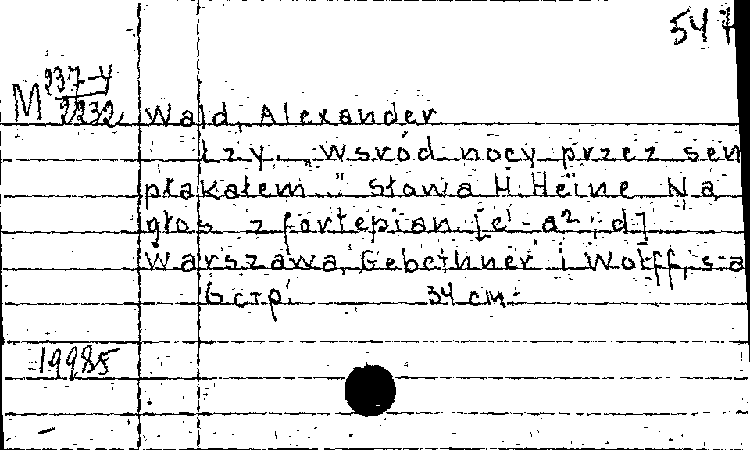 547
M 237-4
2232
Wald, Alexander
Łzy. „Wsród nocy przez sen
płakałem..." Słowa H. Heine Na
głos z fortepian. [c¹-a²; d]
Warszawa, Gebethner i Wolff, s-a
6 стр. 34 см.
19985